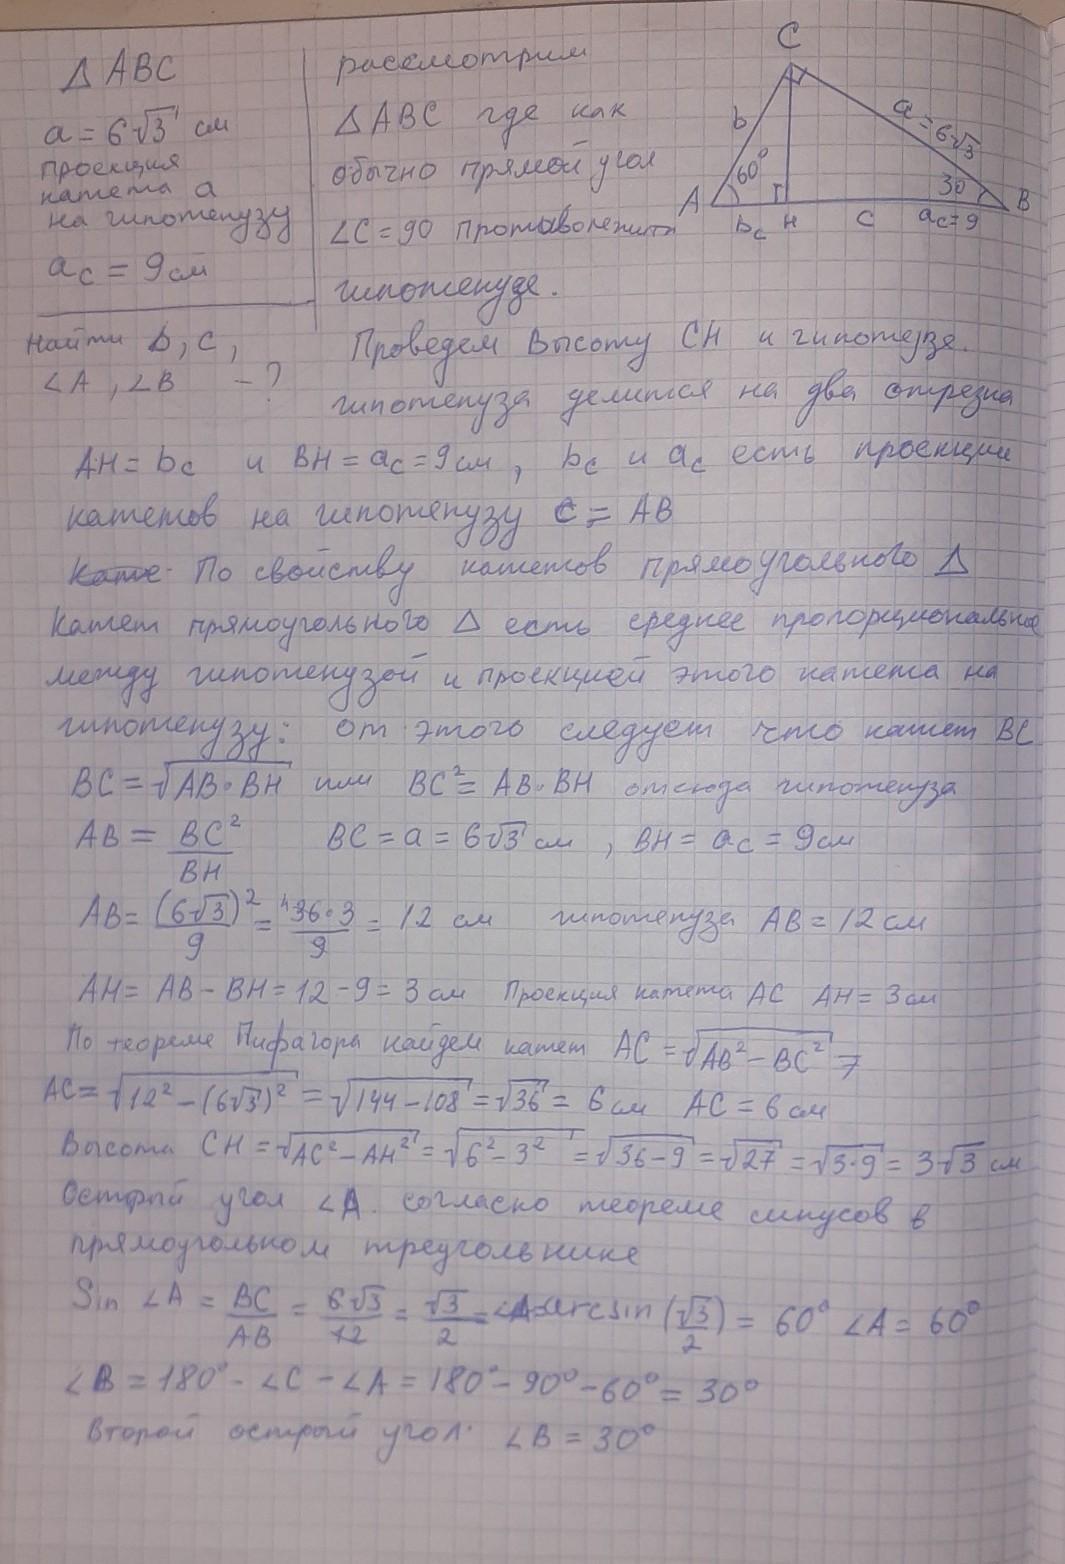 Δ ABC
a = 6√3 см
проекция
катета a
на гипотенузу
a_c = 9 см
Найти b, c,
∠A, ∠B - ?
рассмотрим
Δ ABC где как
обычно прямой угол
∠C = 90 противолежит
гипотенузе.
C
b
a = 6√3
60°
30
A
b_c
H
c
a_c = 9
B
Проведем Высоту CH к гипотезе.
гипотенуза делится на два отрезка
AH = b_c и BH = a_c = 9 см, b_c и a_c есть проекции
катетов на гипотенузу c = AB
Кате По свойству катетов прямоугольного Δ
Катет прямоугольного Δ есть среднее пропорциональное
между гипотенузой и проекцией этого катета на
гипотенузу: от этого следует что катет BC
BC = √(AB·BH) или BC² = AB·BH отсюда гипотенуза
AB = BC²/BH BC = a = 6√3 см, BH = a_c = 9 см
AB = (6√3)²/9 = ⁴36·3/9 = 12 см гипотенуза AB = 12 см
AH = AB - BH = 12 - 9 = 3 см Проекция катета AC AH = 3 см
По теореме Пифагора найдем катет AC = √(AB² - BC²) =
AC = √(12² - (6√3)²) = √(144 - 108) = √36 = 6 см AC = 6 см
Высота CH = √(AC² - AH²) = √(6² - 3²) = √(36 - 9) = √27 = √(3·9) = 3√3 см
Острый угол ∠A. согласно теореме синусов в
прямоугольном треугольнике
Sin ∠A = BC/AB = 6√3/12 = √3/2 = ∠A = arcsin (√3/2) = 60° ∠A = 60°
∠B = 180° - ∠C - ∠A = 180° - 90° - 60° = 30°
Второй острый угол ∠B = 30°